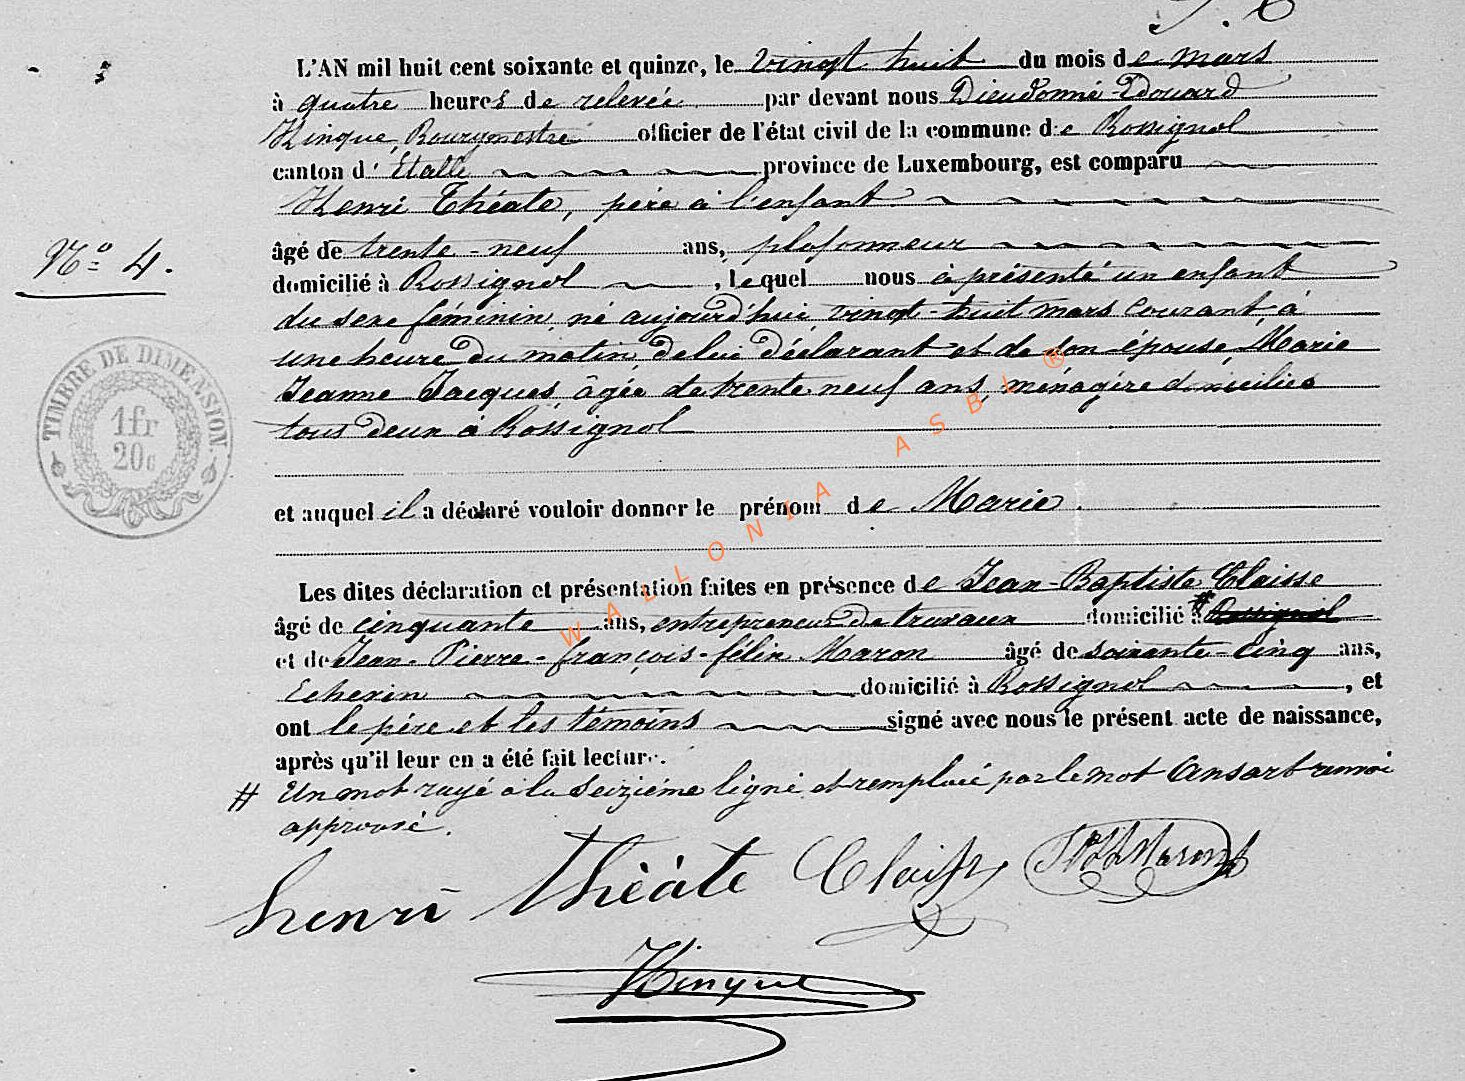 L'AN mil huit cent soixante et quinze, le vingt huit du mois de mars
à quatre heures de relevée par devant nous Dieudonné-Edouard
Hinque, Bourgmestre officier de l'état civil de la commune de Rossignol
canton d'Etalle province de Luxembourg, est comparu
Henri Théate, père à l'enfant
N° 4.
âgé de trente-neuf ans, plafonneur
domicilié à Rossignol, lequel nous à présenté un enfant
du sexe féminin, né aujourd'hui, vingt-huit mars courant, à
une heure du matin, de lui déclarant et de son épouse, Marie
Jeanne Jacques, âgée de trente neuf ans, ménagère domiciliés
tous deux à Rossignol
TIMBRE DE DIMENSION.
1fr
20c
et auquel il a déclaré vouloir donner le prénom de Marie.
Les dites déclaration et présentation faites en présence de Jean-Baptiste Claisse
âgé de cinquante ans, entrepreneur de travaux domicilié à # Rossignol
et de Jean-Pierre-françois-félix Maron âgé de soixante-cinq ans,
Echevin domicilié à Rossignol, et
ont le père et les témoins signé avec nous le présent acte de naissance,
après qu'il leur en a été fait lecture.
# Un mot rayé à la seizième ligne et remplacé par le mot Ansart renvoi
approuvé.
henri théàte Claisse Maron
Hinque
WALLONIA ASBL ®